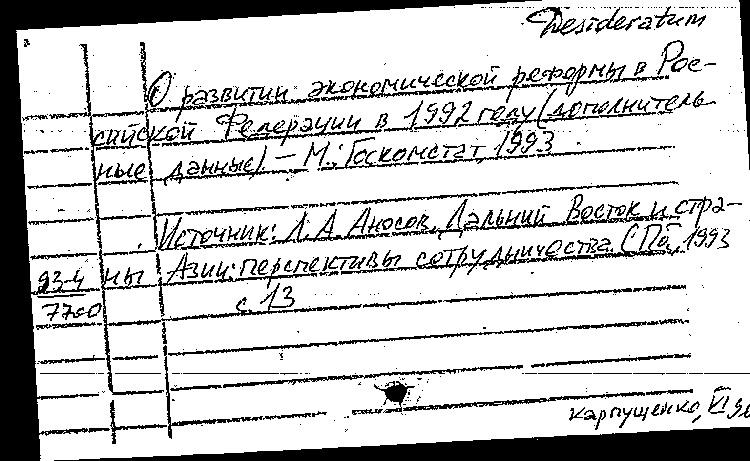 Desideratum
О развитии экономической реформы в Рос-
сийской Федерации в 1992 году (дополнитель-
ные данные) – М.: Госкомстат, 1993.
Источник: Л. А. Аносов, Дальний Восток и стра-
93-4 ны Азии: перспективы сотрудничества. СПб, 1993
7700 с. 13
Карпущенко, XI 96